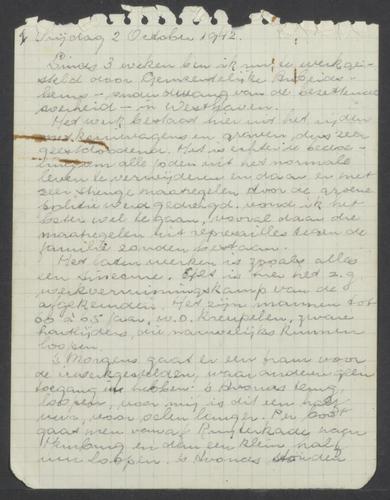 Vrijdag 2 October 1942.
Sinds 3 weken ben ik nu te werkge-
steld door Gemeentelijke Arbeids-
beurs – onder dwang van de bezettende
overheid – in Westhaven.
Het werk bestaat hier uit het rijden
wagens en graven, dus zeer
geestdoodend. Het is
om alle joden uit het normale
leven te verwijderen en daar er met
zeer strenge maatregelen door de groene
politie werd gedreigd, vond ik het
beter wel te gaan, vooral daar die
maatregelen uit represailles tegen de
familie zouden bestaan.
Het laten werken is zooals alles
een sinecure. Het is hier het z.g.
werkverruimingskamp van de
afgekeurden. Het zijn mannen tot
60 à 65 jaar, w.o. kreupelen, zware
hartlijders, die nauwelijks kunnen
loopen.
's Morgens gaat er een tram voor
de tewerkgestelden, waar anderen geen
toegang in hebben. 's Avonds terug
loopen, voor mij is dit een half
uur, voor velen langer. Per boot
gaat men vanaf Ruijterkade naar
Hembrug en dan een klein half
uur loopen. 's Avonds